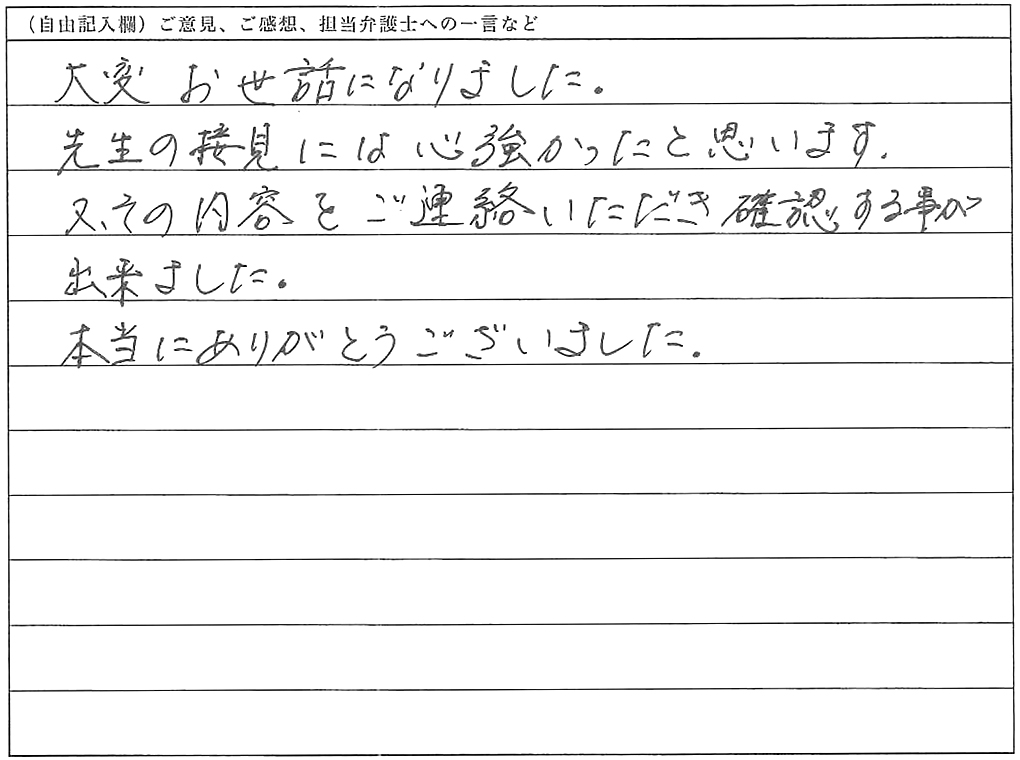 （自由記入欄）ご意見、ご感想、担当弁護士への一言など
大変お世話になりました。
先生の接見には心強かったと思います.
又、その内容をご連絡いただき確認する事が
出来ました。
本当にありがとうございました。